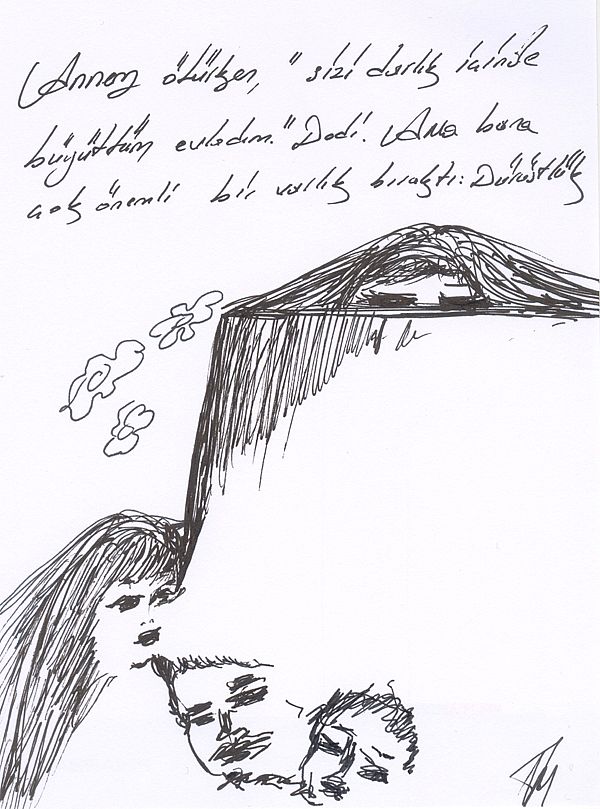 Annem ölürken, "sizi darlık içinde
büyüttüm evladım." Dedi. Ama bana
çok önemli bir varlık bıraktı: Dürüstlük